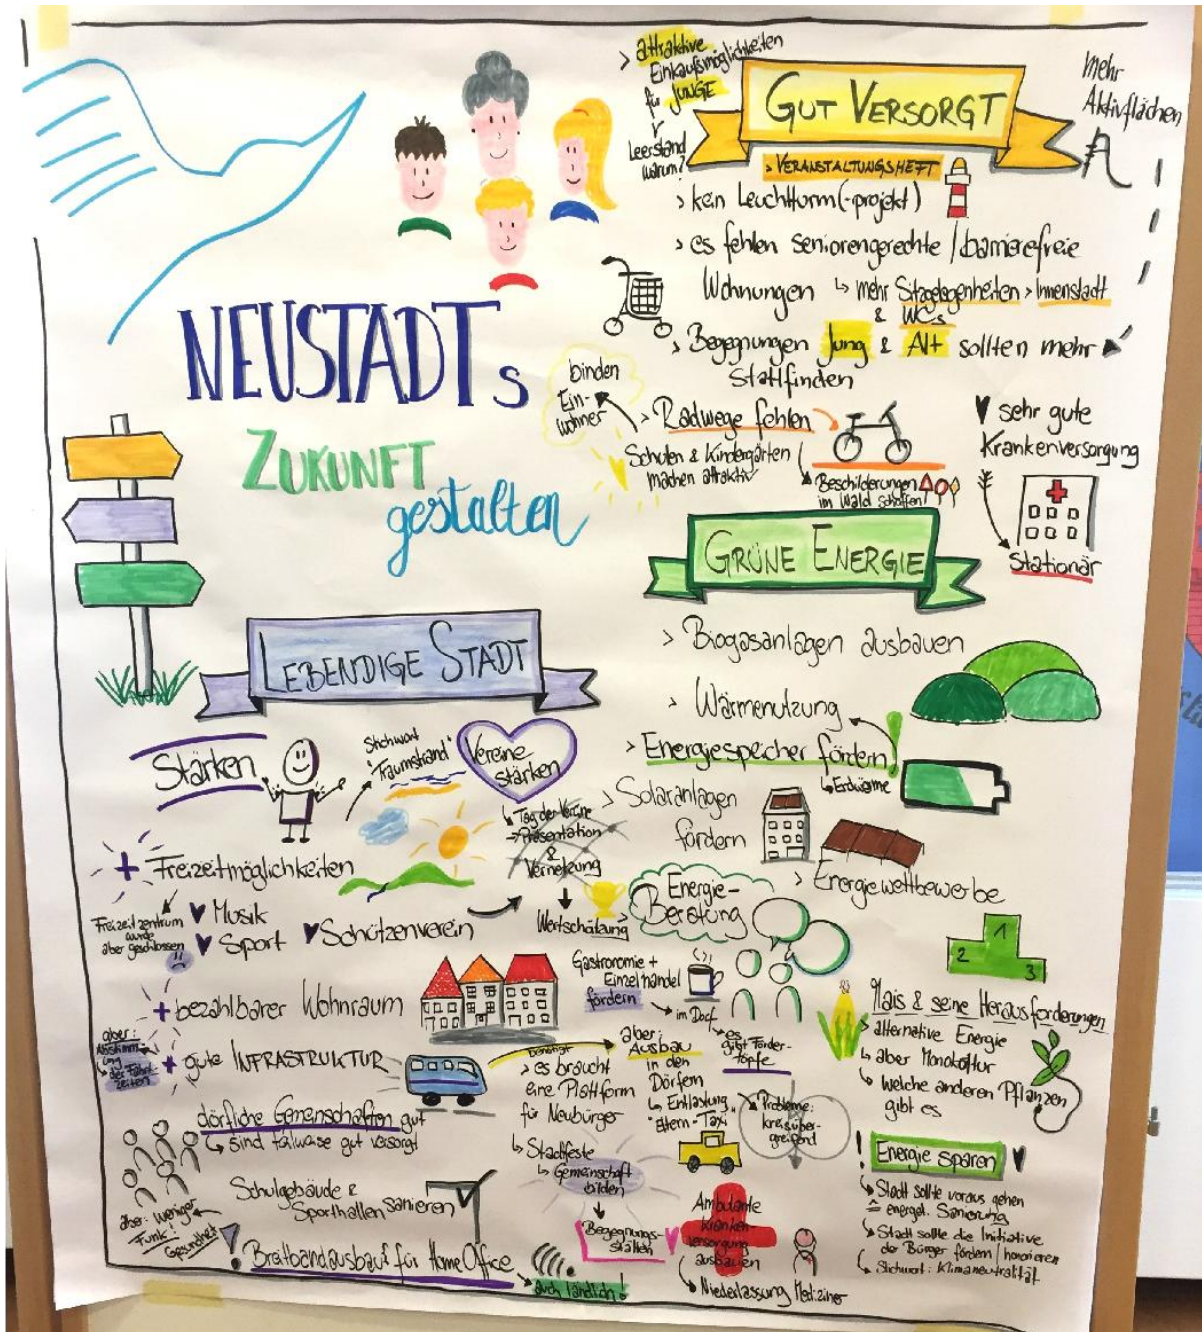 NEUSTADTs
ZUKUNFT
gestalten
> attraktive
Einkaufsmöglichkeiten
für JUNGE
Leerstand
warum?
GUT VERSORGT
mehr
Aktivflächen
> VERANSTALTUNGSHEFT
> kein Leuchtturm(-projekt)
> es fehlen seniorengerechte / barrierefreie
Wohnungen ↳ mehr Sitzgelegenheiten > Innenstadt
& WCs
> Begegnungen Jung & Alt sollten mehr
stattfinden
binden
Ein-
wohner
> Radwege fehlen
Schulen & Kindergärten
machen attraktiv
Beschilderungen
im Wald schaffen!
sehr gute
Krankenversorgung
Stationär
GRÜNE ENERGIE
> Biogasanlagen ausbauen
> Wärmenutzung
> Energiespeicher fördern!
↳ Erdwärme
> Solaranlagen
fördern
> Energiewettbewerbe
1
2
3
Energie-
Beratung
Mais & seine Herausforderungen
> alternative Energie
↳ aber Monokultur
↳ Welche anderen Pflanzen
gibt es
! Energie sparen
↳ Stadt sollte voraus gehen
≙ energet. Sanierung
↳ Stadt sollte die Initiative
der Bürger fördern / honorieren
↳ Stichwort: Klimaneutralität
LEBENDIGE STADT
Stärken
Stichwort
"Traumstrand"
Vereine
stärken
↳ Tag der Vereine
→ Präsentation
&
Vernetzung
Wertschätzung
+ Freizeitmöglichkeiten
Freizeitzentrum
wurde
aber geschlossen
Musik
Sport
Schützenverein
+ bezahlbarer Wohnraum
Gastronomie +
Einzelhandel
fördern
→ im Dorf
es
gibt Förder-
töpfe
+ gute INFRASTRUKTUR
aber:
Abstimm-
ung
der Fahrt-
zeiten
benötigt
> es braucht
eine Plattform
für Neubürger
↳ Stadtfeste
↳ Gemeinschaft
bilden
Begegnungs-
stätten
aber:
Ausbau
in den
Dörfern
↳ Entlastung
"Eltern-Taxi"
Probleme:
kreisüber-
greifend
dörfliche Gemeinschaften gut
↳ sind teilweise gut versorgt
Schulgebäude &
Sporthallen sanieren
aber: weniger
Funk!
Gesundheit
! Breitbandausbau für HomeOffice
auch ländlich!
Ambulante
Kranken-
versorgung
ausbauen
↳ Niederlassung Mediziner